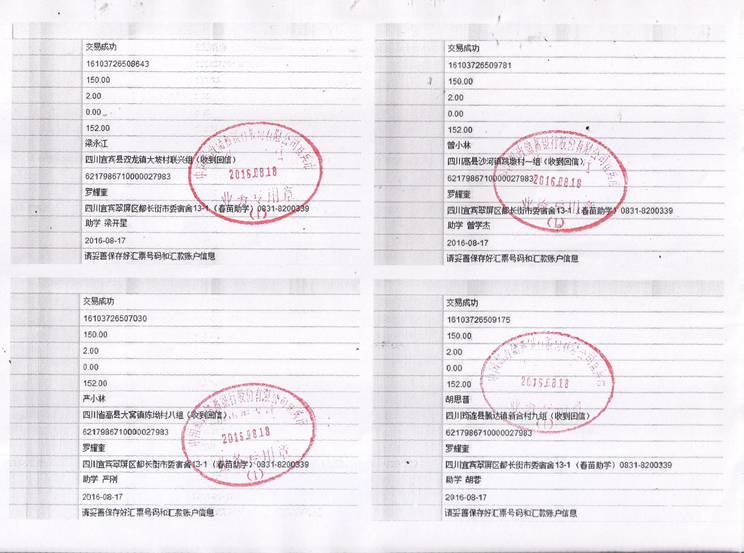 交易成功
16103726508643
150.00
2.00
0.00
152.00
梁永江
四川宜宾县双龙镇大坡村联兴组（收到回信）
6217986710000027983
罗耀奎
四川宜宾翠屏区都长街市委宿舍13-1（春苗助学）0831-8200339
助学 梁芹星
2016-08-17
请妥善保存好汇票号码和汇款账户信息
2016.08.18
业务专用章
(1)
交易成功
16103726509781
150.00
2.00
0.00
152.00
曾小林
四川高县沙河镇跳墩村一组（收到回信）
6217986710000027983
罗耀奎
四川宜宾翠屏区都长街市委宿舍13-1（春苗助学）0831-8200339
助学 曾学杰
2016-08-17
请妥善保存好汇票号码和汇款账户信息
2016.08.18
业务专用章
(1)
交易成功
16103726507030
150.00
2.00
0.00
152.00
严小林
四川省高县大窝镇炼坳村八组（收到回信）
6217986710000027983
罗耀奎
四川宜宾翠屏区都长街市委宿舍13-1（春苗助学）0831-8200339
助学 严刚
2016-08-17
请妥善保存好汇票号码和汇款账户信息
2016.08.18
业务专用章
(1)
交易成功
16103726509175
150.00
2.00
0.00
152.00
胡思晋
四川筠连县腾达镇新合村九组（收到回信）
6217986710000027983
罗耀奎
四川宜宾翠屏区都长街市委宿舍13-1（春苗助学）0831-8200339
助学 胡蓉
2016-08-17
请妥善保存好汇票号码和汇款账户信息
2016.08.18
(1)